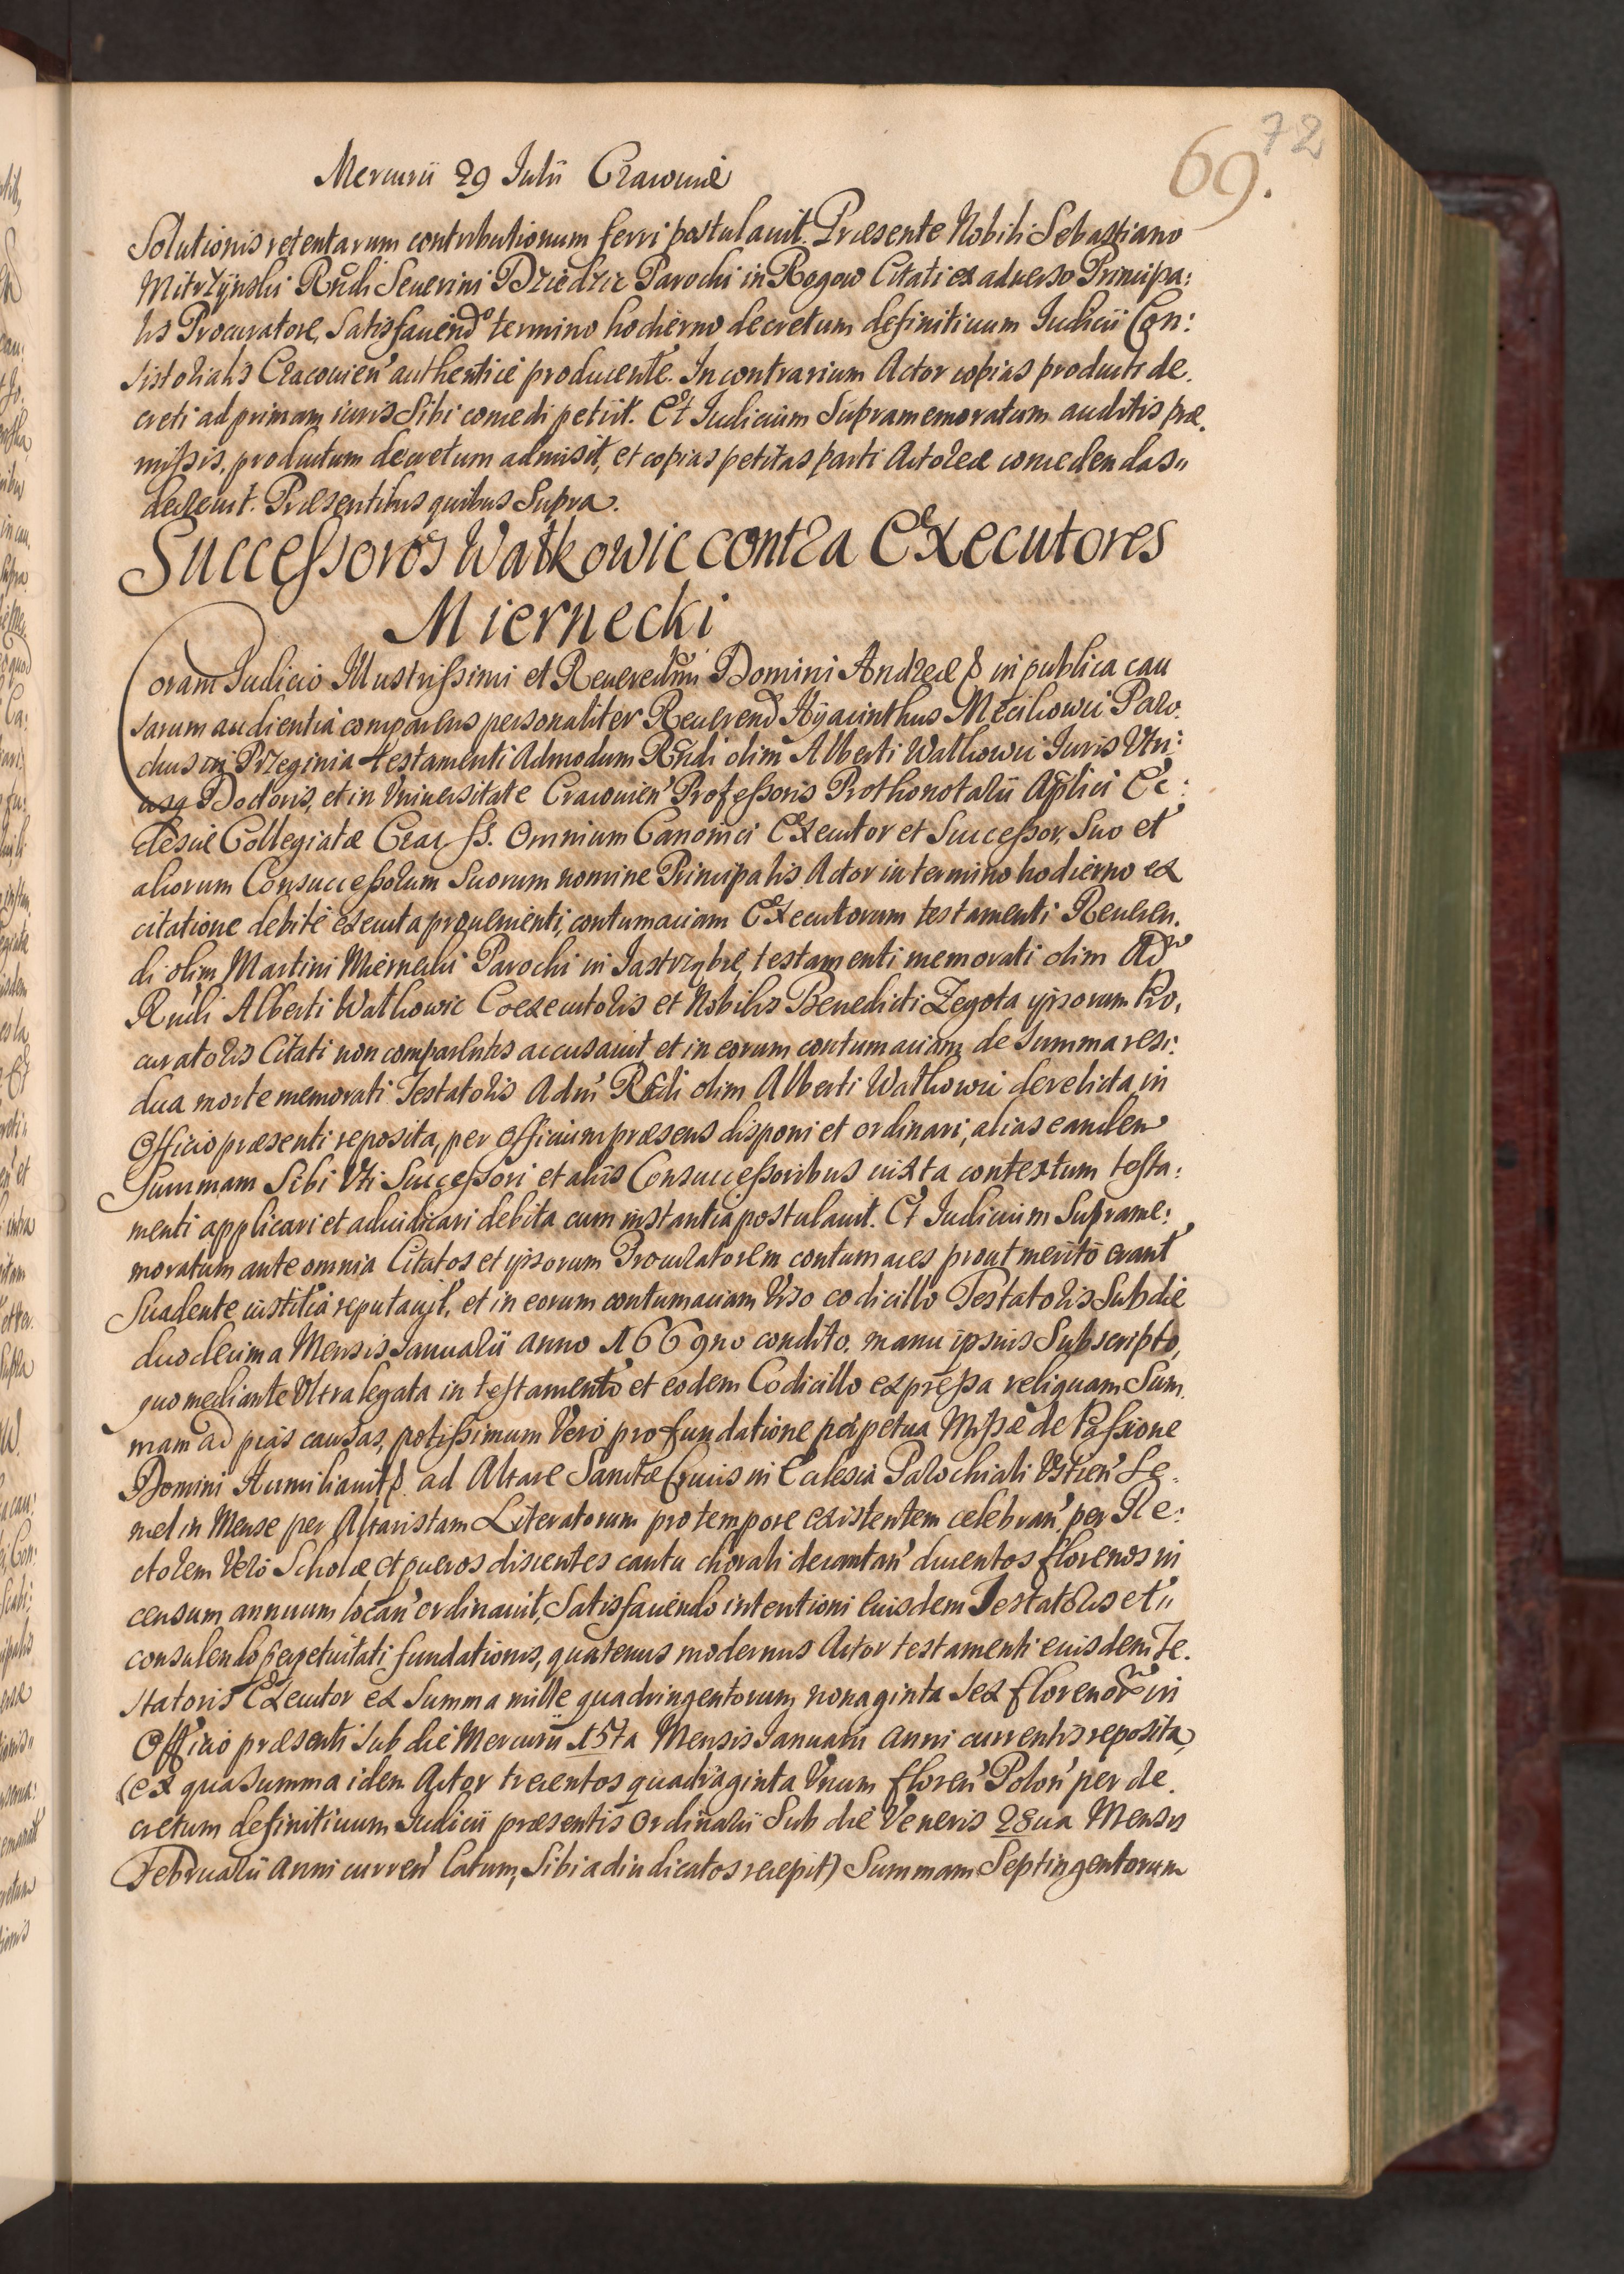 72
69.
Mercurii 29 Julii Cracouiæ
Solutionis retentarum contributionum ferri postulauit. Præsente Nobili Sebastiano
Mitrzÿnski Rñdi Seuerini Dziedzic Parochi in Rogow Citati ex aduerso Principa:
lis Procuratore, Satisfaciendo termino hodierno decretum definitiuum Iudicii Con:
sistorialis Cracouien̄ authenticè producente. In contrarium Actor copias producti de.
creti ad primam iuris Sibi concedi petiit. Et Iudicium Supramemoratum auditis præ.
missis, productum decretum admisit, et copias petitas parti Actoreæ concedendas„
decreuit. Præsentibus quibus Supra.
Successores Watkowic contra Executores
Miernecki
Coram Iudicio Illustrissimi et Reuerendm̄i Domini Andreæ & in publica cau
sarum audientia comparens personaliter Reuerend Hÿacinthus Mecikowic Paro.
chus in Przeginia testamenti Admodum Rñdi olim Alberti Watkowic Iuris Vtri:
usq Doctoris, et in Vniuersitate Cracouien̄ Professoris Prothonotarii Ap̄lici Ec:
clesiæ Collegiatæ Crac SS. Omnium Canonici Executor et Successor, Suo et
aliorum Consuccessorum Suorum nomine Principalis Actor in termino hodierno ex
citatione debitè executa prouenienti, contumaciam Executorum testamenti Reueren.
di olim Martini Miernecki Parochi in Jastrzębie, testamenti memorati olim Adm̄
Rñdi Alberti Watkowic Coexecutoris et Nobilis Benedicti Zegota ipsorum Pro,
curatoris Citati non comparentis accusauit et in eorum contumaciam de Summa resi:
dua morte memorati Testatoris Adm̄ Rñdi olim Alberti Watkowic derelicta, in
Officio præsenti reposita, per Officium præsens disponi et ordinari, alias eandem
Summam Sibi Vti Successori et aliis Consuccessoribus iuxta contextum testa:
menti applicari et adiudicari debita cum instantia postulauit. Et Iudicium Suprame:
moratum ante omnia Citatos et ipsorum Procuratorem contumaces prout meritò erant
Suadente iustitiâ reputauit, et in eorum contumaciam Viso codicillo Testatoris Sub die
duodecima Mensis Ianuarii anno 1669no condito. manu ipsius Subscripto,
quo mediante Vltra legata in testamento et eodem Codicillo expressa reliquam Sum.
mam ad pias causas, potissimum Vero pro fundatione perpetua Missæ de Passione
Domini Humiliauit & ad Altare Sanctæ Crucis in Ecclesia Parochiali Vscien̄ Se.
mel in Mense per Altaristam Literatorum pro tempore existentem celebran̄ per Re:
ctorem Verò Scholæ et pueros discentes cantu chorali decantan̄ ducentos florenos in
censum annuum locan̄ ordinauit, Satisfaciendo intentioni eiusdem Testatoris et„
consulendo perpetuitati fundationis, quatenus modernus Actor testamenti eiusdem Te.
statoris Executor ex Summa mille quadringentorum nonaginta Sex florenor̄ in
Officio præsenti Sub die Mercurii 15ta Mensis Ianuarii anni currentis reposita,
(ex qua Summa idem Actor trecentos quadraginta Vnum floren̄ Polon̄ per de.
cretum definitiuum Iudicii præsentis Ordinarii Sub die Veneris 28ua Mensis
Februarii anni curren̄ latum, Sibi adiudicatos recepit) Summam Septingentorum